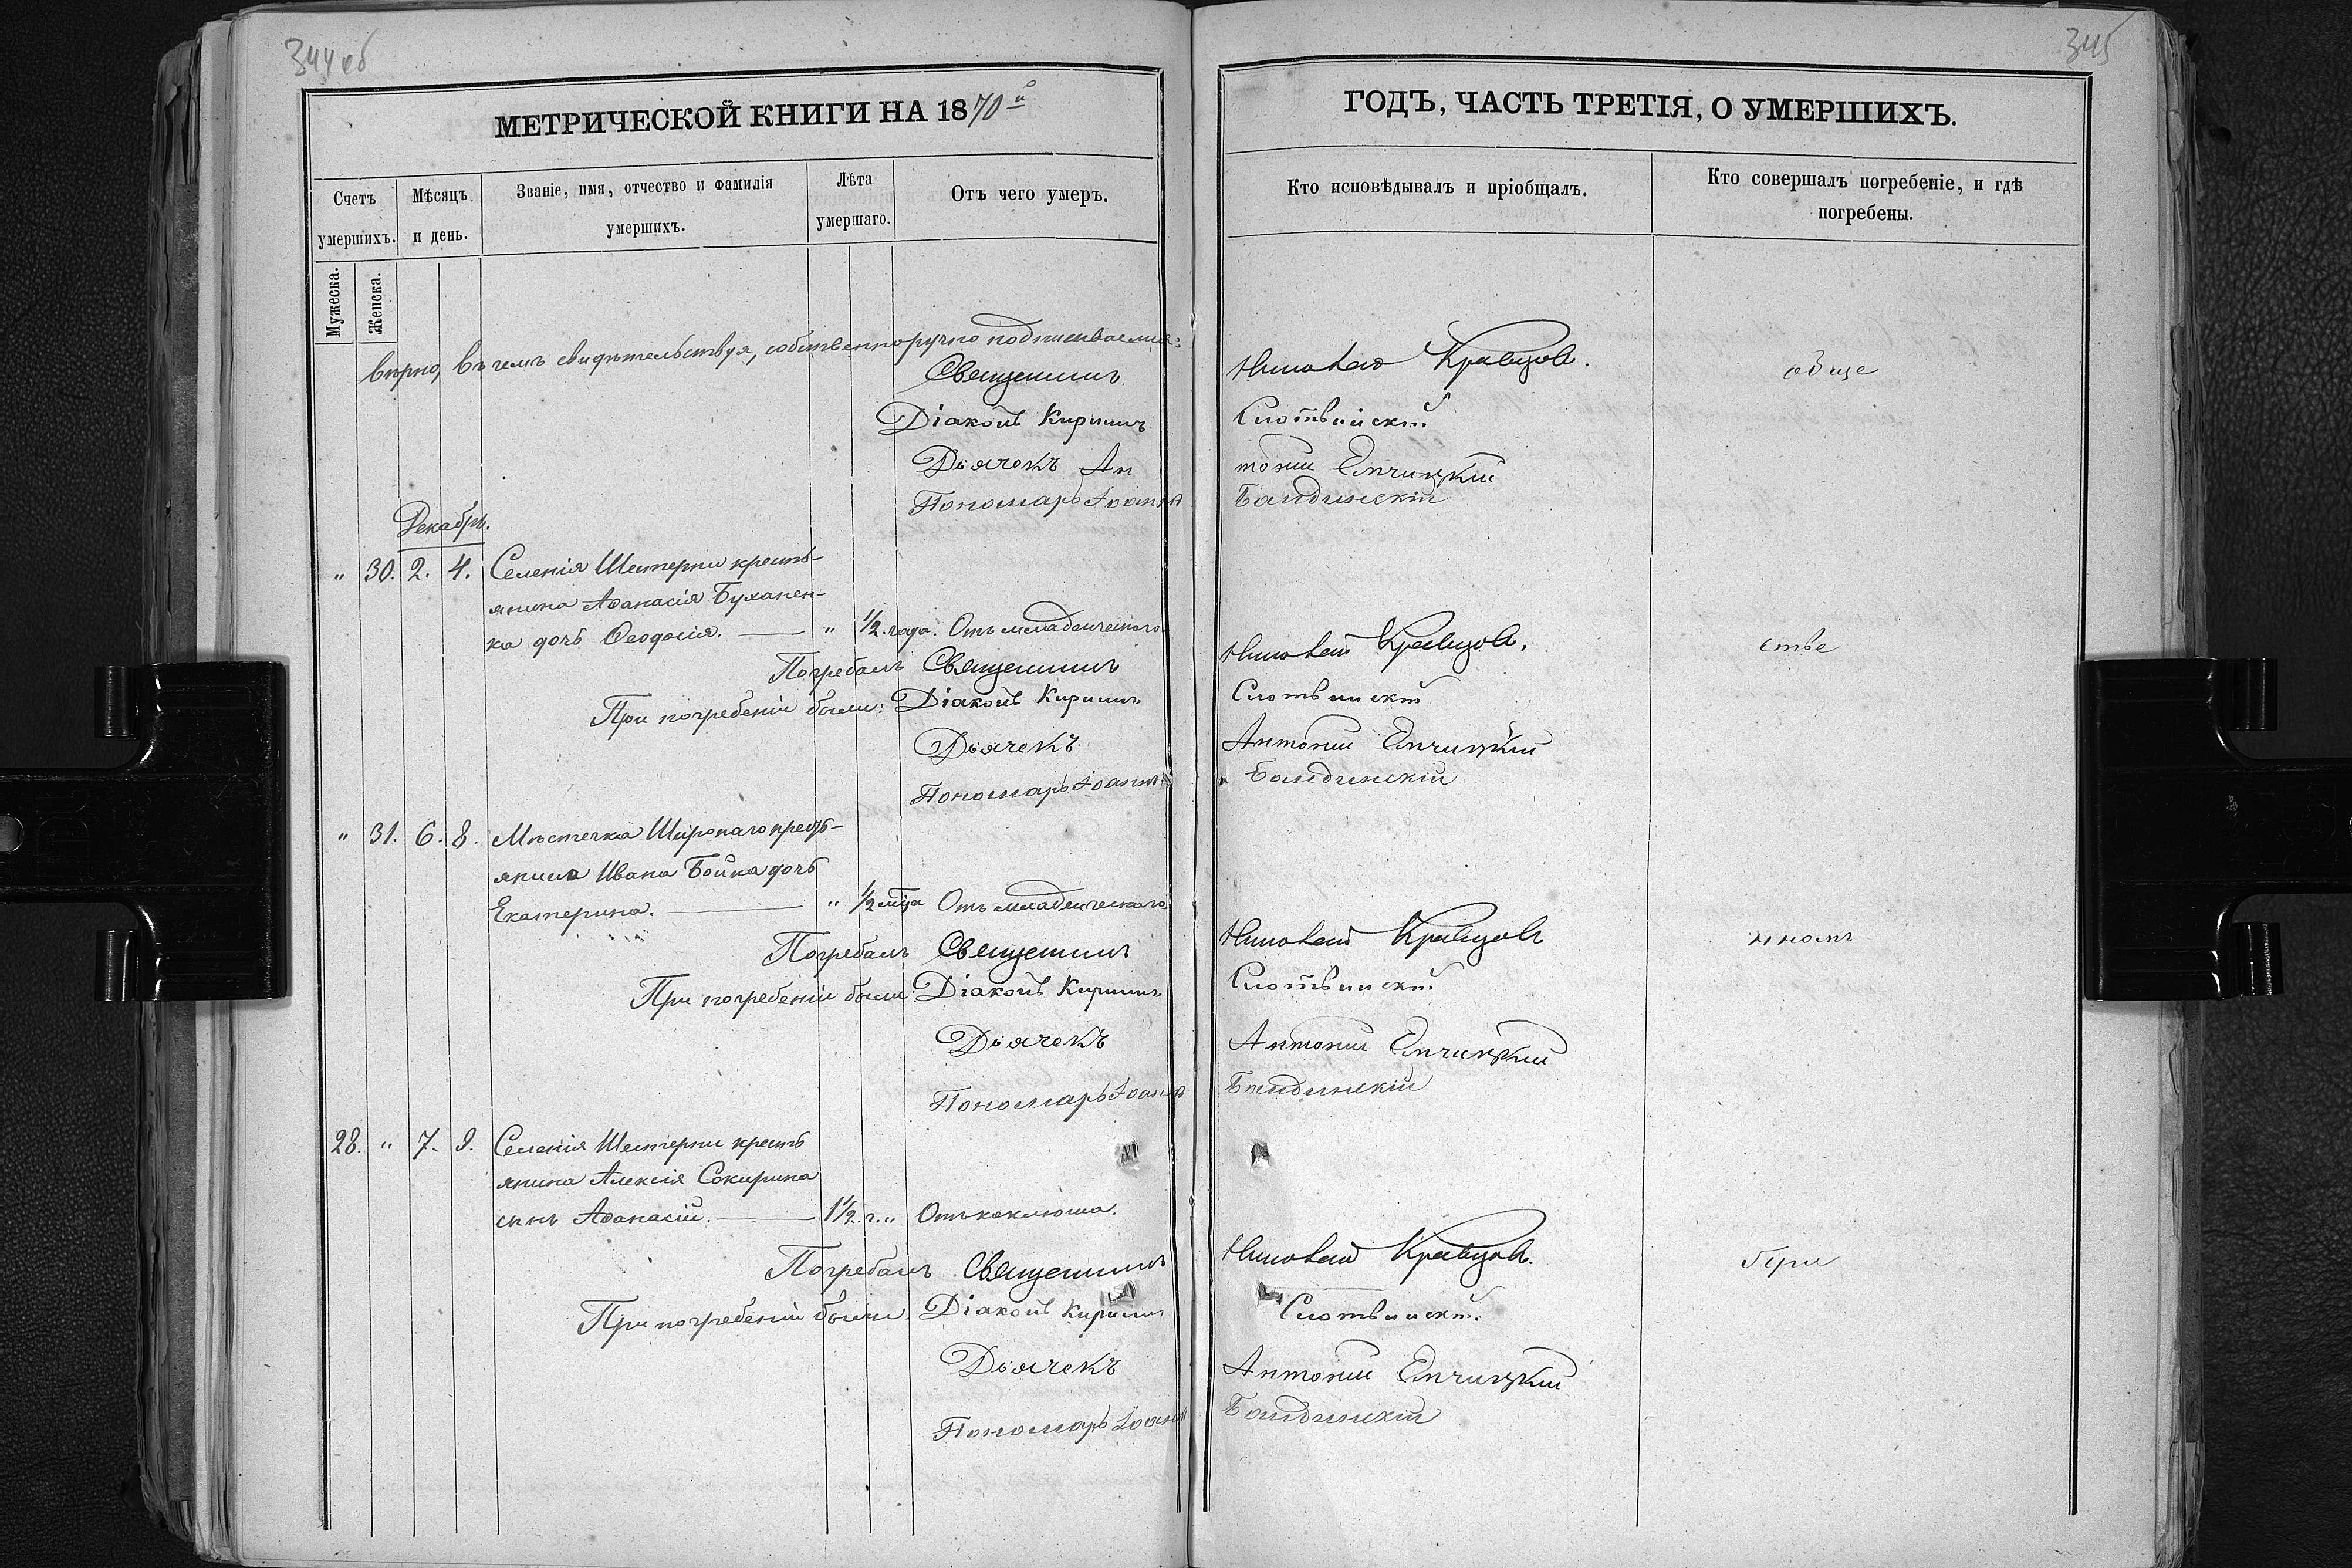 344 об
345
МЕТРИЧЕСКОЙ КНИГИ НА 1870й
ГОДЪ, ЧАСТЬ ТРЕТІЯ, О УМЕРШИХЪ.
Счетъ умершихъ.
Мѣсяцъ и день.
Званіе, имя, отчество и фамилія умершихъ.
Лѣта умершаго.
Отъ чего умеръ.
Кто исповѣдывалъ и пріобщалъ.
Кто совершалъ погребеніе, и гдѣ погребены.
Мужеска.
Женска.
вѣрно, въ чемъ свидѣтельствуя, собственноручно подписываемся:
Священникъ Николай Кравцовъ. обще
Діаконъ Кириллъ Слотвинскій
Дьячекъ Антоній
Пономарь Іоаннъ
Декабрь.
" 30. 2. 4. Селенія Шестерни кресть-
янина Аѳанасія Буханен-
ка дочь Ѳеодосія. — " 1/2. года. Отъ младенческаго
Погребалъ Священникъ Николай Кравцовъ. стве
При погребеніи были: Діаконъ Кириллъ Слотвинскій
Дьячекъ Антоній
Пономарь Іоаннъ
" 31. 6. 8. Мѣстечка Широкаго кресть-
янина Ивана Бойка дочь
Екатерина. — " 1/2 мца Отъ младенческаго
Погребалъ Священникъ Николай Кравцовъ нномъ
При погребеніи были: Діаконъ Кириллъ Слотвинскій
Дьячекъ Антоній
Пономарь Іоаннъ
28. " 7. 9. Селенія Шестерни кресть
янина Алексія Сокирина
сынъ Аѳанасій. — 1 1/2. г. " Отъ коклюша.
Погребалъ Священникъ Николай Кравцовъ.
При погребеніи были. Діаконъ Кириллъ Слотвинскій.
Дьячекъ Антоній
Пономарь Іоаннъ